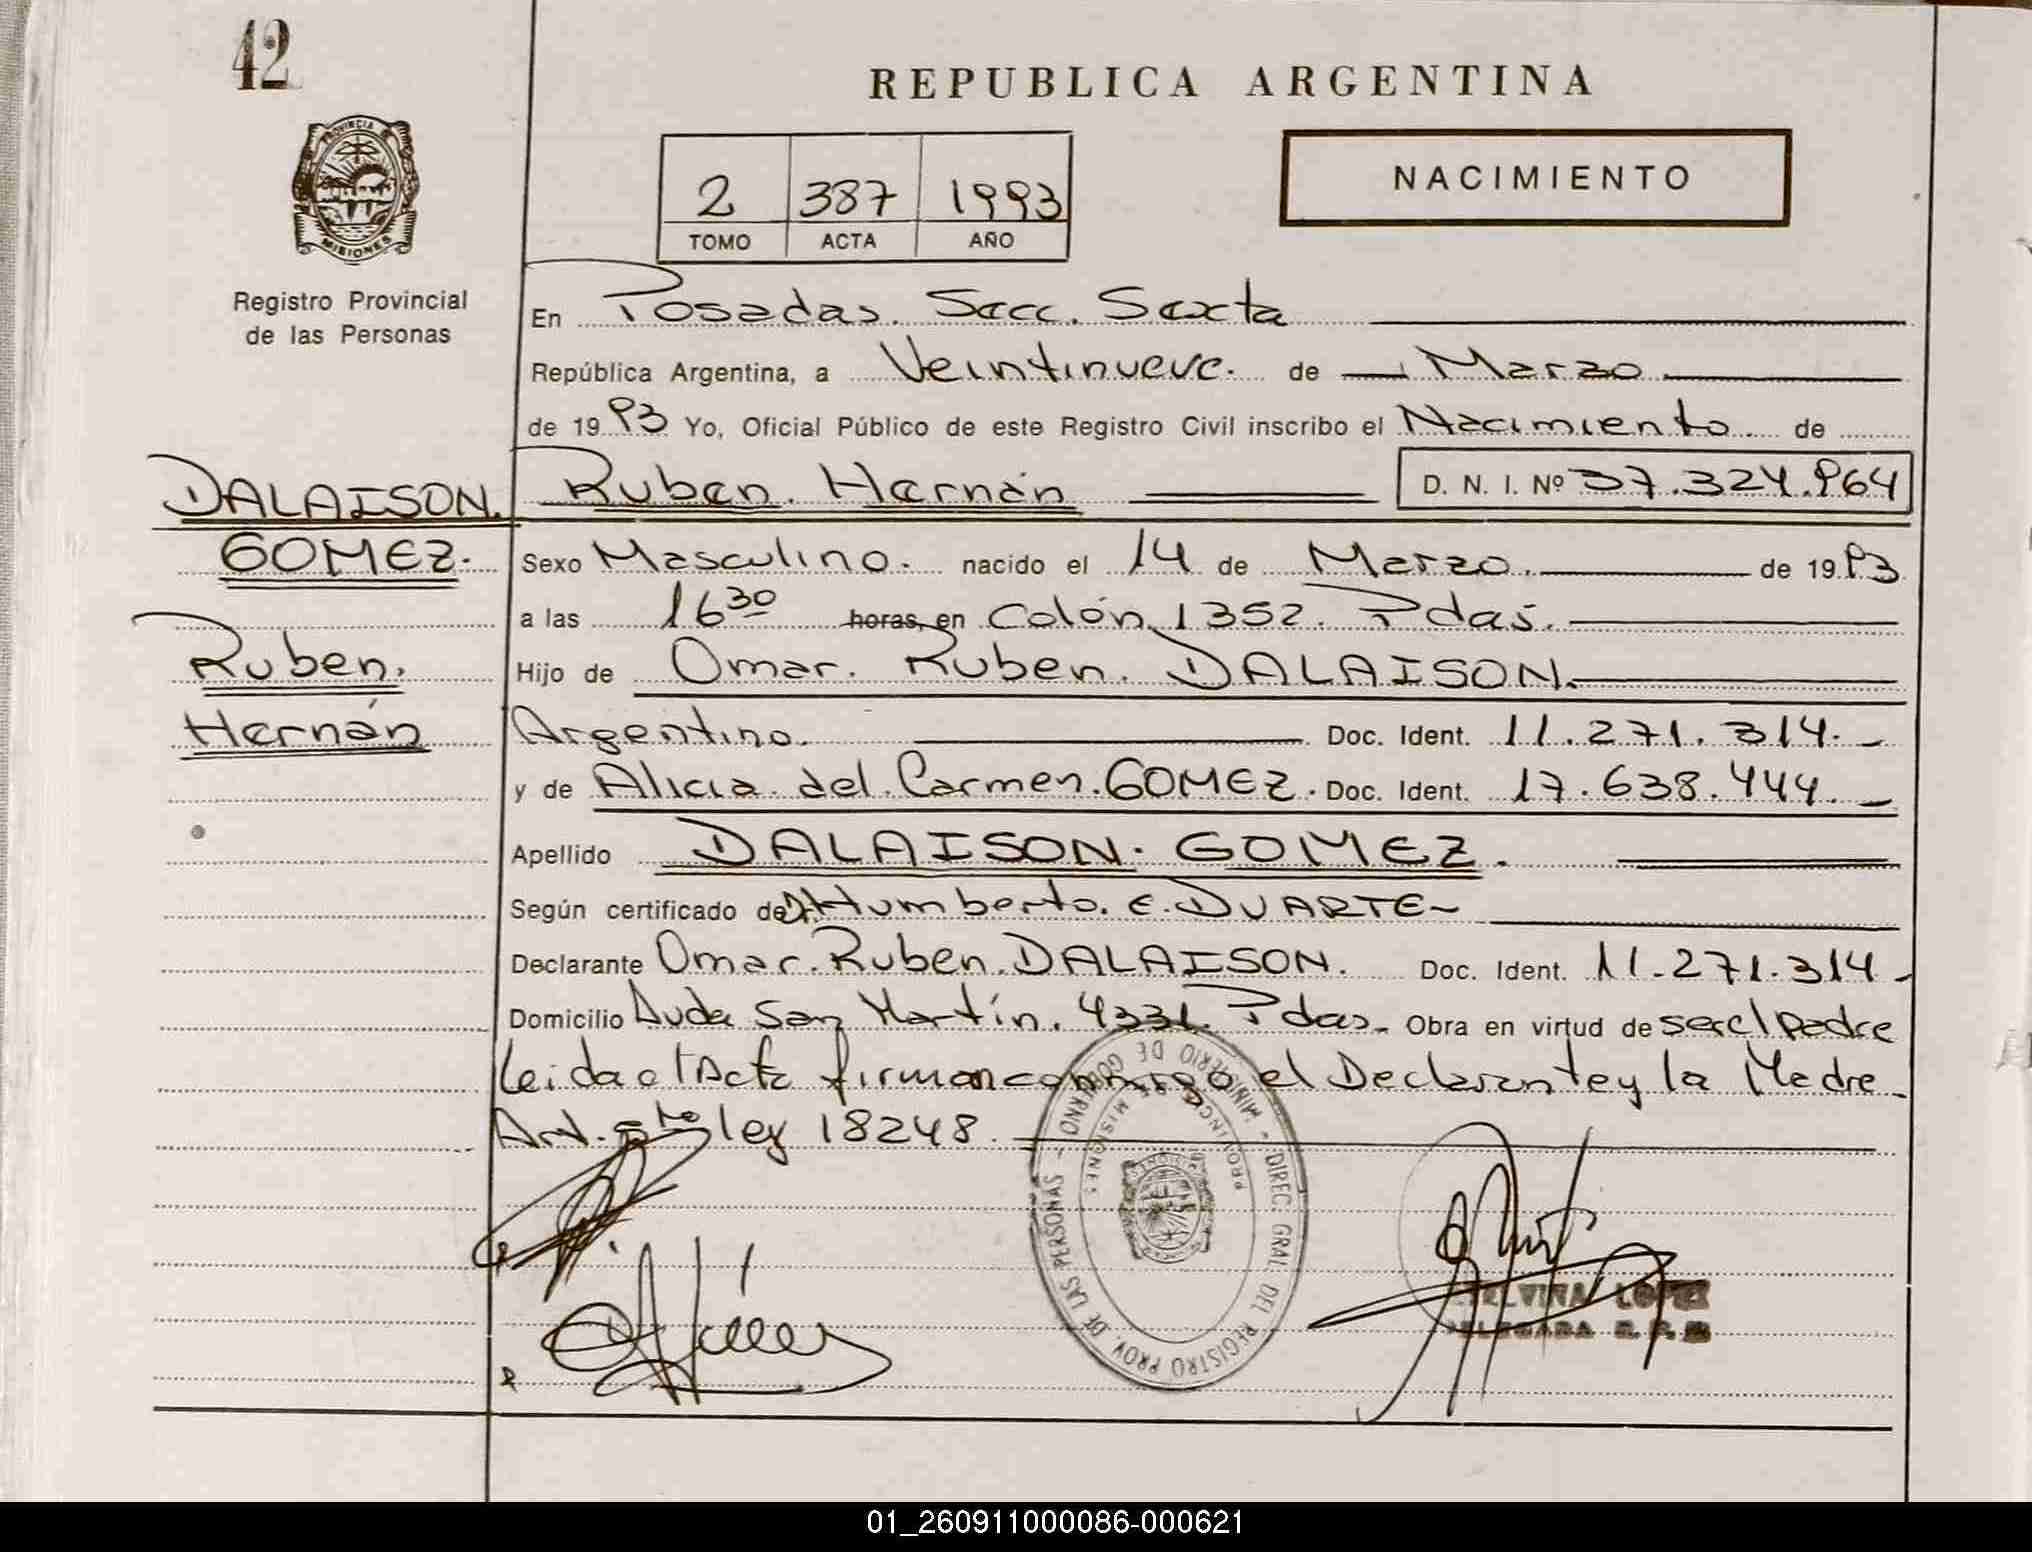 42
REPUBLICA ARGENTINA
PROVINCIA DE
MISIONES
2 387 1993
TOMO ACTA AÑO
NACIMIENTO
Registro Provincial
de las Personas
En Posadas. Secc. Sexta
República Argentina, a Veintinueve. de Marzo
de 1993 Yo, Oficial Público de este Registro Civil inscribo el Nacimiento de
DALAISON. Ruben. Hernán D. N. I. Nº 37.324.964
GOMEZ. Sexo Masculino. nacido el 14 de Marzo. de 1993
a las 16 30 horas, en Colón 1352. Pdas.
Ruben. Hijo de Omar. Ruben. DALAISON.
Hernán Argentino. Doc. Ident. 11.271.314.
y de Alicia del Carmen. GOMEZ. Doc. Ident. 17.638.444.
Apellido DALAISON. GOMEZ.
Según certificado de Humberto. E. DUARTE
Declarante Omar. Ruben. DALAISON. Doc. Ident. 11.271.314
Domicilio Avda San Martín. 4331. Pdas. Obra en virtud de ser el padre
Leida el Acta firman conmigo el Declarante y la Madre
Art. 5to ley 18248.
MINISTERIO DE GOBIERNO - DIREC. GRAL. DEL REGISTRO PROV. DE LAS PERSONAS -
PROVINCIA DE MISIONES
LOPEZ
DELEGADA R. P.
01_260911000086-000621